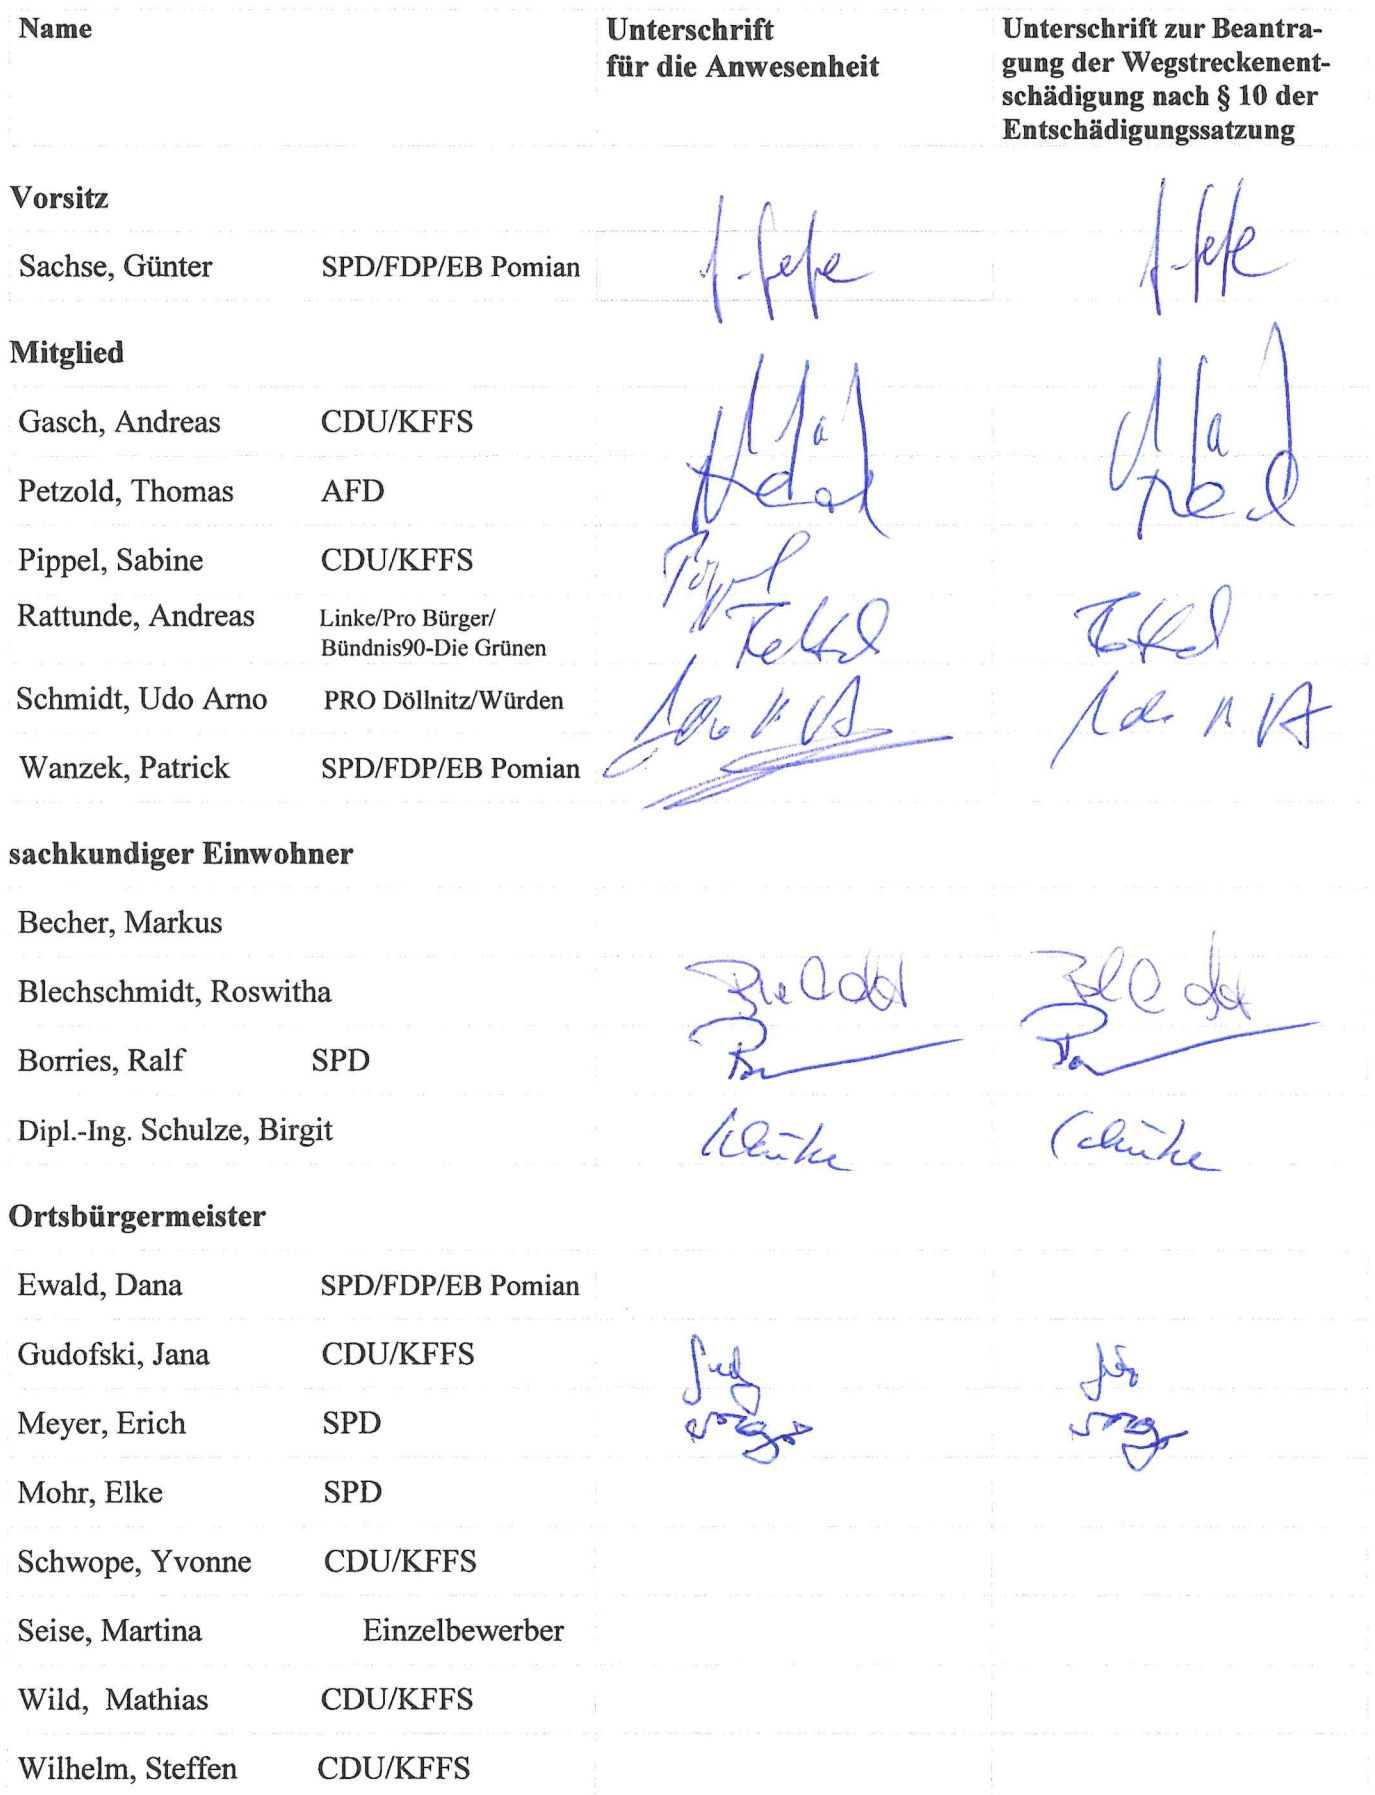 Name Unterschrift für die Anwesenheit Unterschrift zur Beantra-
gung der Wegstreckenent-
schädigung nach § 10 der
Entschädigungssatzung
Vorsitz
Sachse, Günter SPD/FDP/EB Pomian
Mitglied
Gasch, Andreas CDU/KFFS
Petzold, Thomas AFD
Pippel, Sabine CDU/KFFS
Rattunde, Andreas Linke/Pro Bürger/
Bündnis90-Die Grünen
Schmidt, Udo Arno PRO Döllnitz/Würden
Wanzek, Patrick SPD/FDP/EB Pomian
sachkundiger Einwohner
Becher, Markus
Blechschmidt, Roswitha
Borries, Ralf SPD
Dipl.-Ing. Schulze, Birgit
Ortsbürgermeister
Ewald, Dana SPD/FDP/EB Pomian
Gudofski, Jana CDU/KFFS
Meyer, Erich SPD
Mohr, Elke SPD
Schwope, Yvonne CDU/KFFS
Seise, Martina Einzelbewerber
Wild, Mathias CDU/KFFS
Wilhelm, Steffen CDU/KFFS